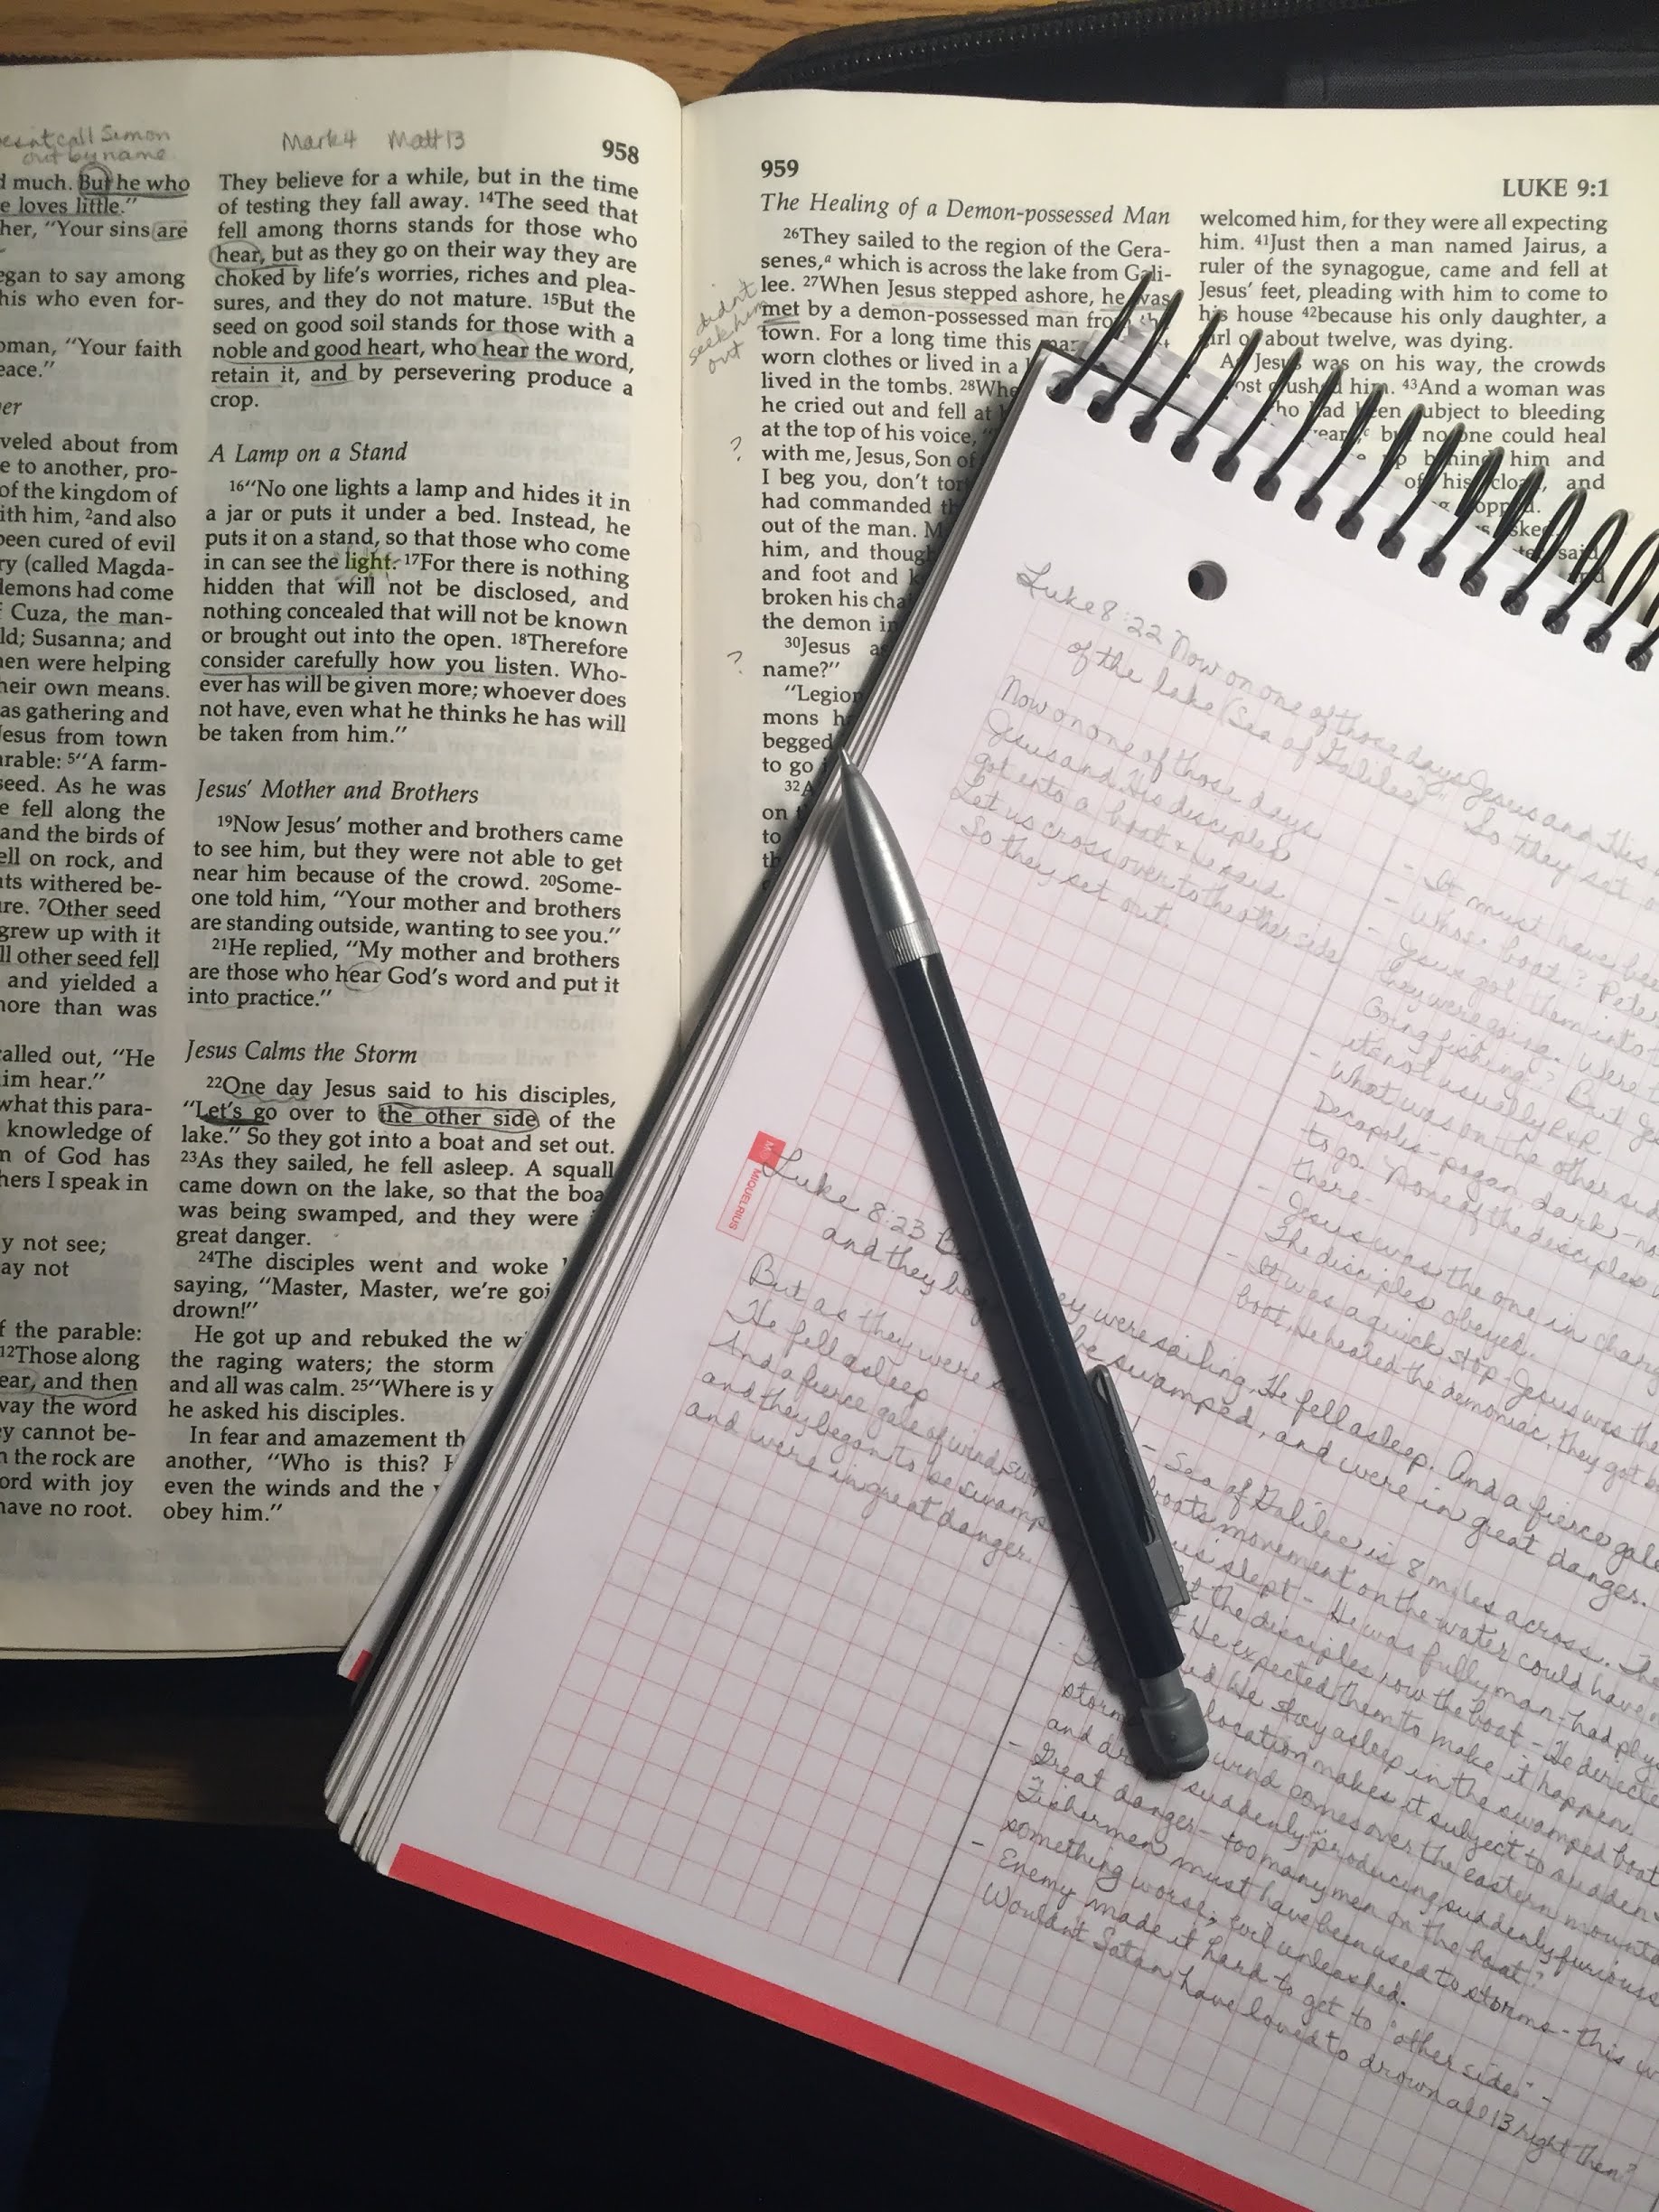 esnt call Simon
out by name
d much. But he who
e loves little."
her, "Your sins are
egan to say among
his who even for-
oman, "Your faith
eace."
er
veled about from
e to another, pro-
of the kingdom of
ith him, ²and also
been cured of evil
ry (called Magda-
demons had come
f Cuza, the man-
ld; Susanna; and
nen were helping
heir own means.
as gathering and
Jesus from town
arable: ⁵"A farm-
seed. As he was
e fell along the
and the birds of
ell on rock, and
nts withered be-
ure. ⁷Other seed
grew up with it
ll other seed fell
and yielded a
more than was
called out, "He
im hear."
what this para-
knowledge of
n of God has
hers I speak in
y not see;
ay not
f the parable:
¹²Those along
ear, and then
way the word
ey cannot be-
n the rock are
ord with joy
have no root.
Mark 4 Matt 13
958
They believe for a while, but in the time
of testing they fall away. ¹⁴The seed that
fell among thorns stands for those who
hear, but as they go on their way they are
choked by life's worries, riches and plea-
sures, and they do not mature. ¹⁵But the
seed on good soil stands for those with a
noble and good heart, who hear the word,
retain it, and by persevering produce a
crop.
A Lamp on a Stand
¹⁶"No one lights a lamp and hides it in
a jar or puts it under a bed. Instead, he
puts it on a stand, so that those who come
in can see the light. ¹⁷For there is nothing
hidden that will not be disclosed, and
nothing concealed that will not be known
or brought out into the open. ¹⁸Therefore
consider carefully how you listen. Who-
ever has will be given more; whoever does
not have, even what he thinks he has will
be taken from him."
Jesus' Mother and Brothers
¹⁹Now Jesus' mother and brothers came
to see him, but they were not able to get
near him because of the crowd. ²⁰Some-
one told him, "Your mother and brothers
are standing outside, wanting to see you."
²¹He replied, "My mother and brothers
are those who hear God's word and put it
into practice."
Jesus Calms the Storm
²²One day Jesus said to his disciples,
"Let's go over to the other side of the
lake." So they got into a boat and set out.
²³As they sailed, he fell asleep. A squall
came down on the lake, so that the boa
was being swamped, and they were i
great danger.
²⁴The disciples went and woke
saying, "Master, Master, we're goi
drown!"
He got up and rebuked the w
the raging waters; the storm
and all was calm. ²⁵"Where is y
he asked his disciples.
In fear and amazement th
another, "Who is this? H
even the winds and the
obey him."
959
The Healing of a Demon-possessed Man
²⁶They sailed to the region of the Gera-
senes,ᵃ which is across the lake from Gali-
lee. ²⁷When Jesus stepped ashore, he was
met by a demon-possessed man from the
town. For a long time this man
worn clothes or lived in a
lived in the tombs. ²⁸Whe
he cried out and fell at
at the top of his voice, "
with me, Jesus, Son of
I beg you, don't tor
had commanded th
out of the man. M
him, and though
and foot and k
broken his cha
the demon in
³⁰Jesus as
name?"
"Legion
mons h
begged
to go
³²A
on t
to
th
didn't
seek him
out
?
?
LUKE 9:1
welcomed him, for they were all expecting
him. ⁴¹Just then a man named Jairus, a
ruler of the synagogue, came and fell at
Jesus' feet, pleading with him to come to
his house ⁴²because his only daughter, a
girl of about twelve, was dying.
As Jesus was on his way, the crowds
ost crushed him. ⁴³And a woman was
ho had been subject to bleeding
years,ᶜ but no one could heal
up behind him and
of his cloak, and
g stopped.
asked.
ter said
Luke 8:22 Now on one of those days Jesus and His
of the lake (Sea of Galilee)." So they set o
Now on one of those days
Jesus and His disciples
got into a boat & He said
Let us cross over to the other side
So they set out.
- It must have bee
- Whose boat? Peter
- Jesus got them into
they were going. Were t
Going fishing? But Je
it not usually R&R
- What was on the other sid
Decapolis - pagan, dark - no
to go. None of the disciples w
there -
- Jesus was the one in charg
The disciples obeyed.
- It was a quick stop - Jesus was the
boat, He healed the demoniac, they got b
MIQUELRIUS
Luke 8:23 B ey were sailing, He fell asleep. And a fierce gale
and they beg be swamped, and were in great danger.
But as they were s
He fell asleep
And a fierce gale of wind sw
and they began to be swamp
and were in great danger.
- Sea of Galilee is 8 miles across. The
boats movement on the water could have
us slept - He was fully man - had phys
t the disciples row the boat - He directe
He expected them to make it happen.
did He stay asleep in the swamped boat
storm location makes it subject to sudden
and wind comes over the eastern mounta
suddenly "producing suddenly furious
- Great danger - too many men on the boat?
Fishermen must have been used to storms - this w
something worse; evil unleashed.
- Enemy made it hard to get to "other side" -
Wouldn't Satan have loved to drown all 13 right then?